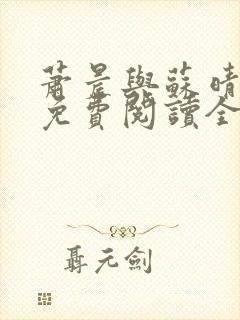 蕭晨與蘇晴
免費閱讀全
聶元劍